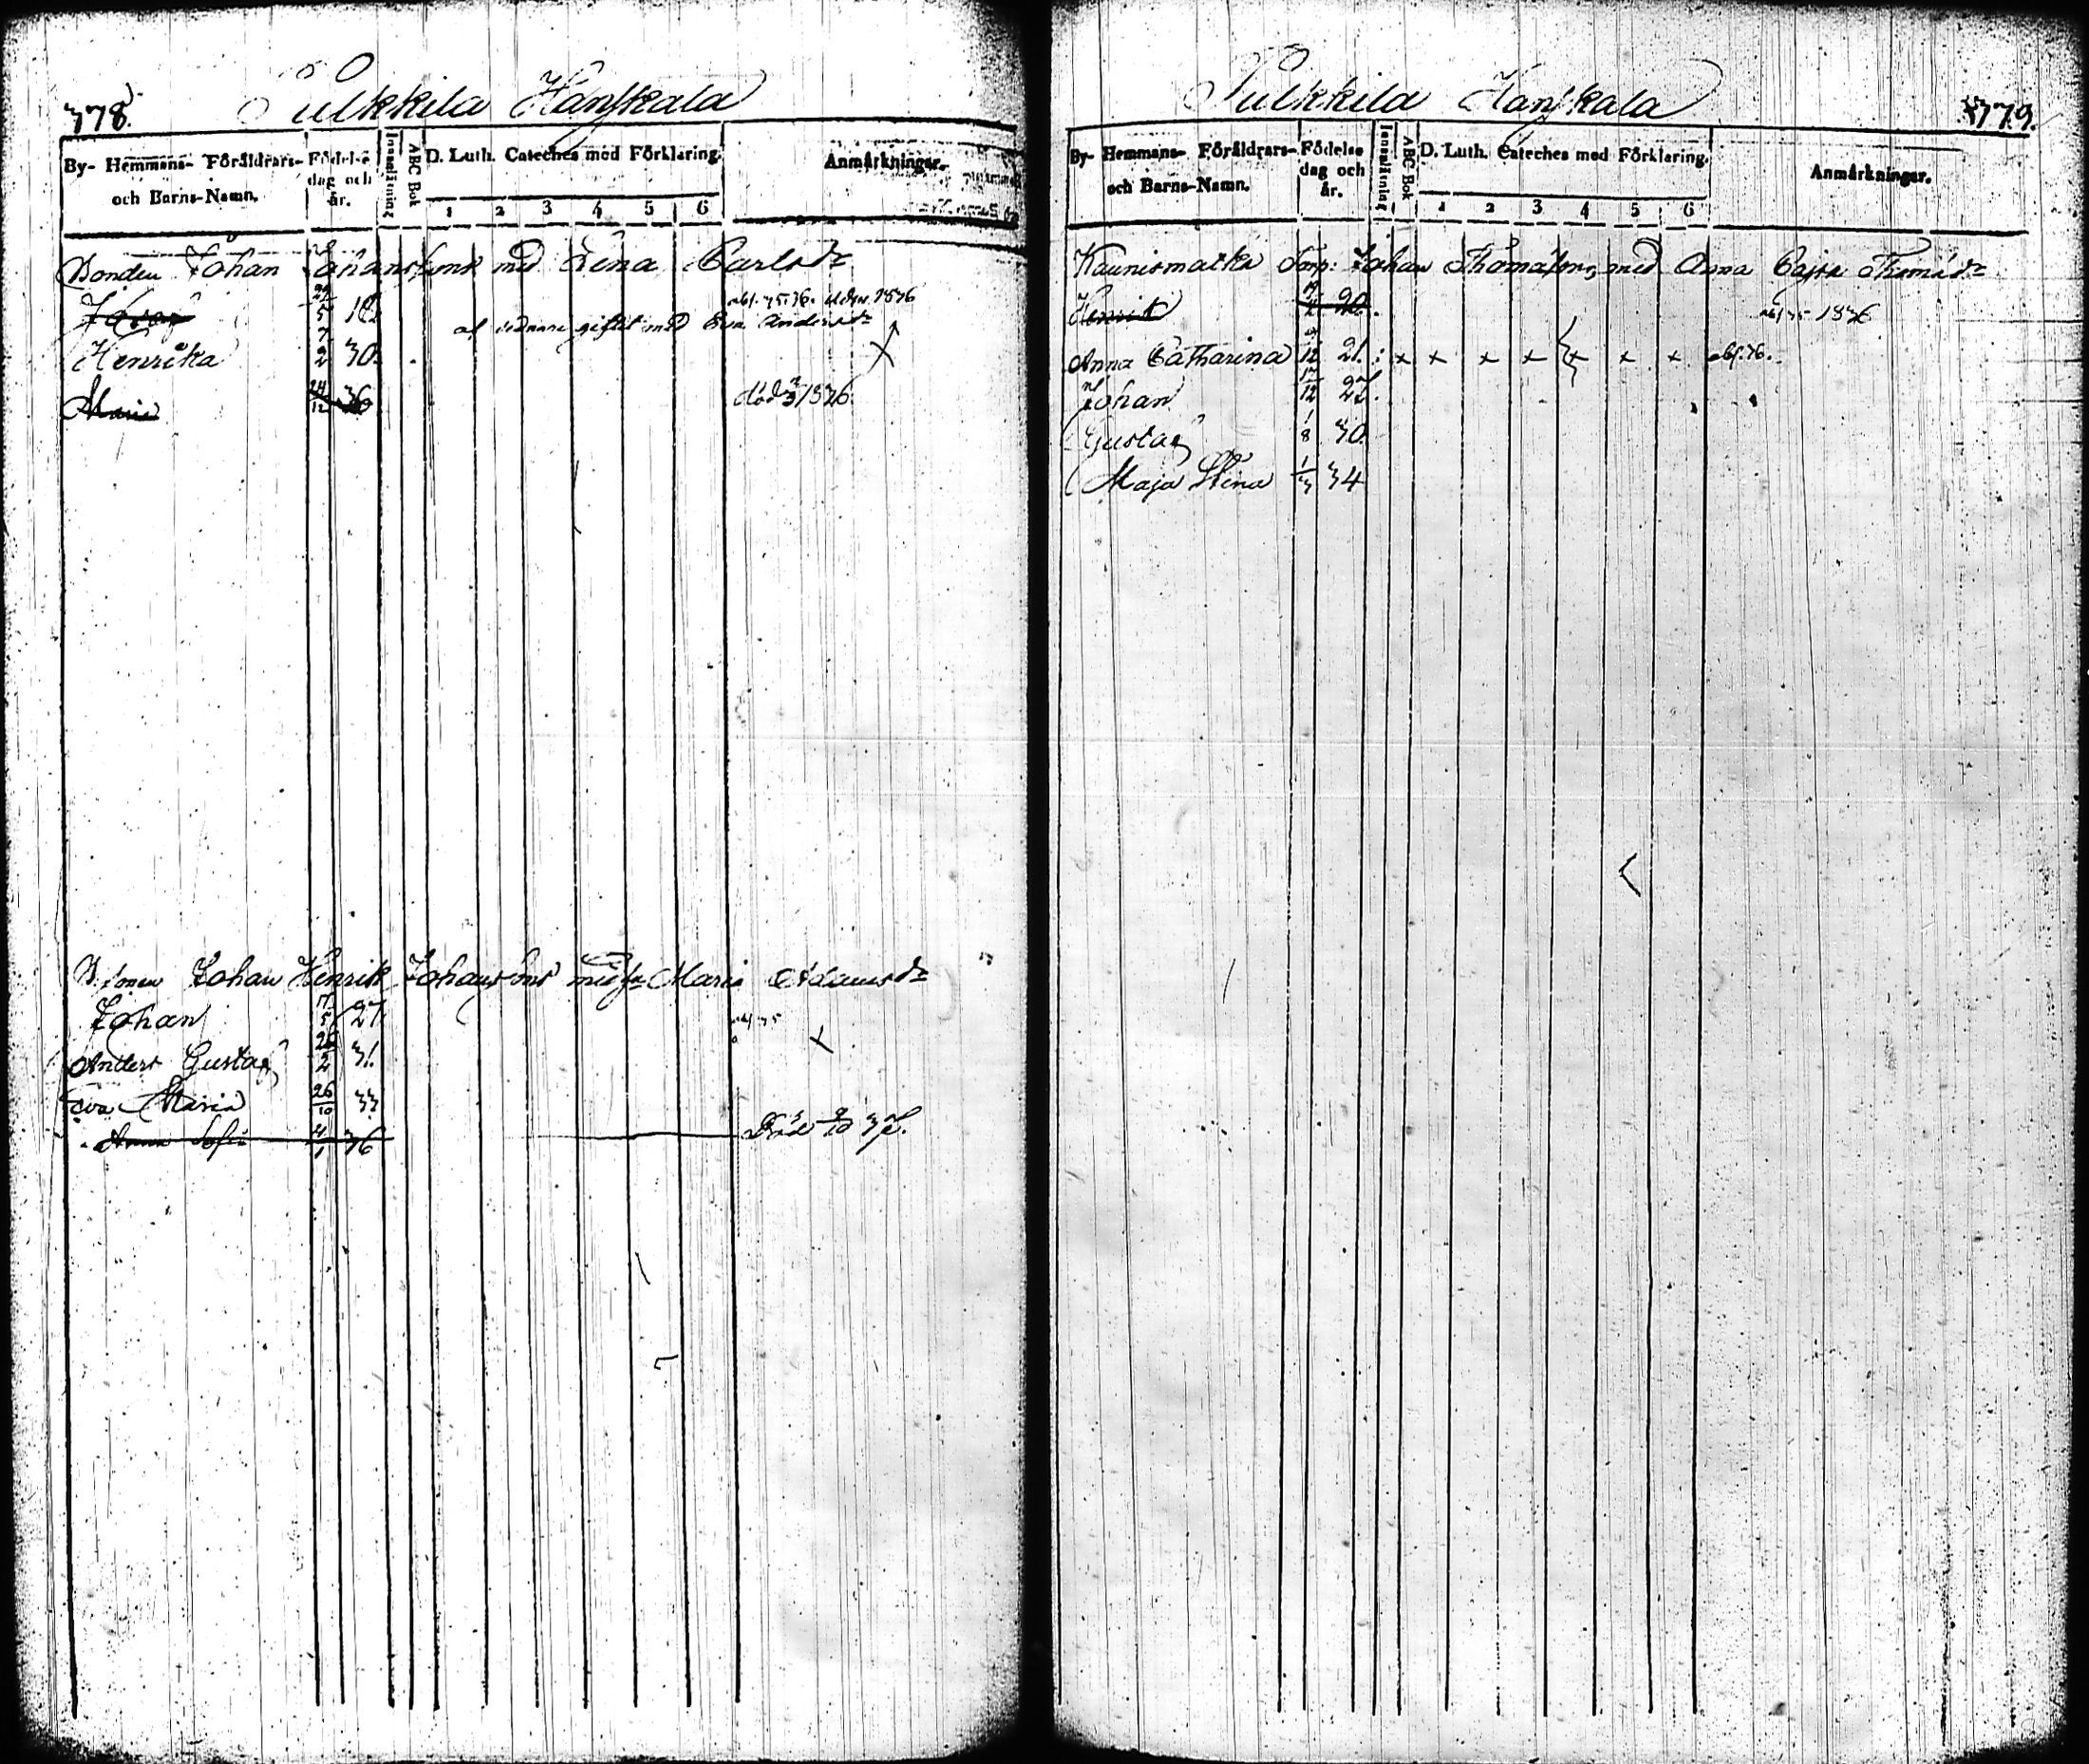 378.
Pulkkila Hanskala
By- Hemmans- Föräldrars- och Barns-Namn. Födelse dag och år. Innanläsning ABC Bok D. Luth. Cateches med Förklaring. 1 2 3 4 5 6 Anmärkningar.
Bonden Johan Johansson med Lena Carlsdr
22/5 18. 1836
af sednare giftet med Eva Andersdr
Henrika 7/2 30. X
Maria 24/12 36 död 1836
B. sonen Johan Henrik Johansson med Maria Adamsdr
Johan 17/5 27
Anders Gustaf 26/2 31.
Eva Maria 26/10 33
Anna Sofia 4/1 36 Död 9/10 37.
379.
Pulkkila Hanskala
By- Hemmans- Föräldrars- och Barns-Namn. Födelse dag och år. Innanläsning ABC Bok D. Luth. Cateches med Förklaring. 1 2 3 4 5 6 Anmärkningar.
Kaunismatka Torp: Johan Thomasson, med Anna Cajsa Thomädr
Henrik 20. 1836
Anna Catharina 21. + + + + + + + abs. 36.
Johan 17/12 27.
Gustaf 1/8 30
Maja Stina 1/3 34